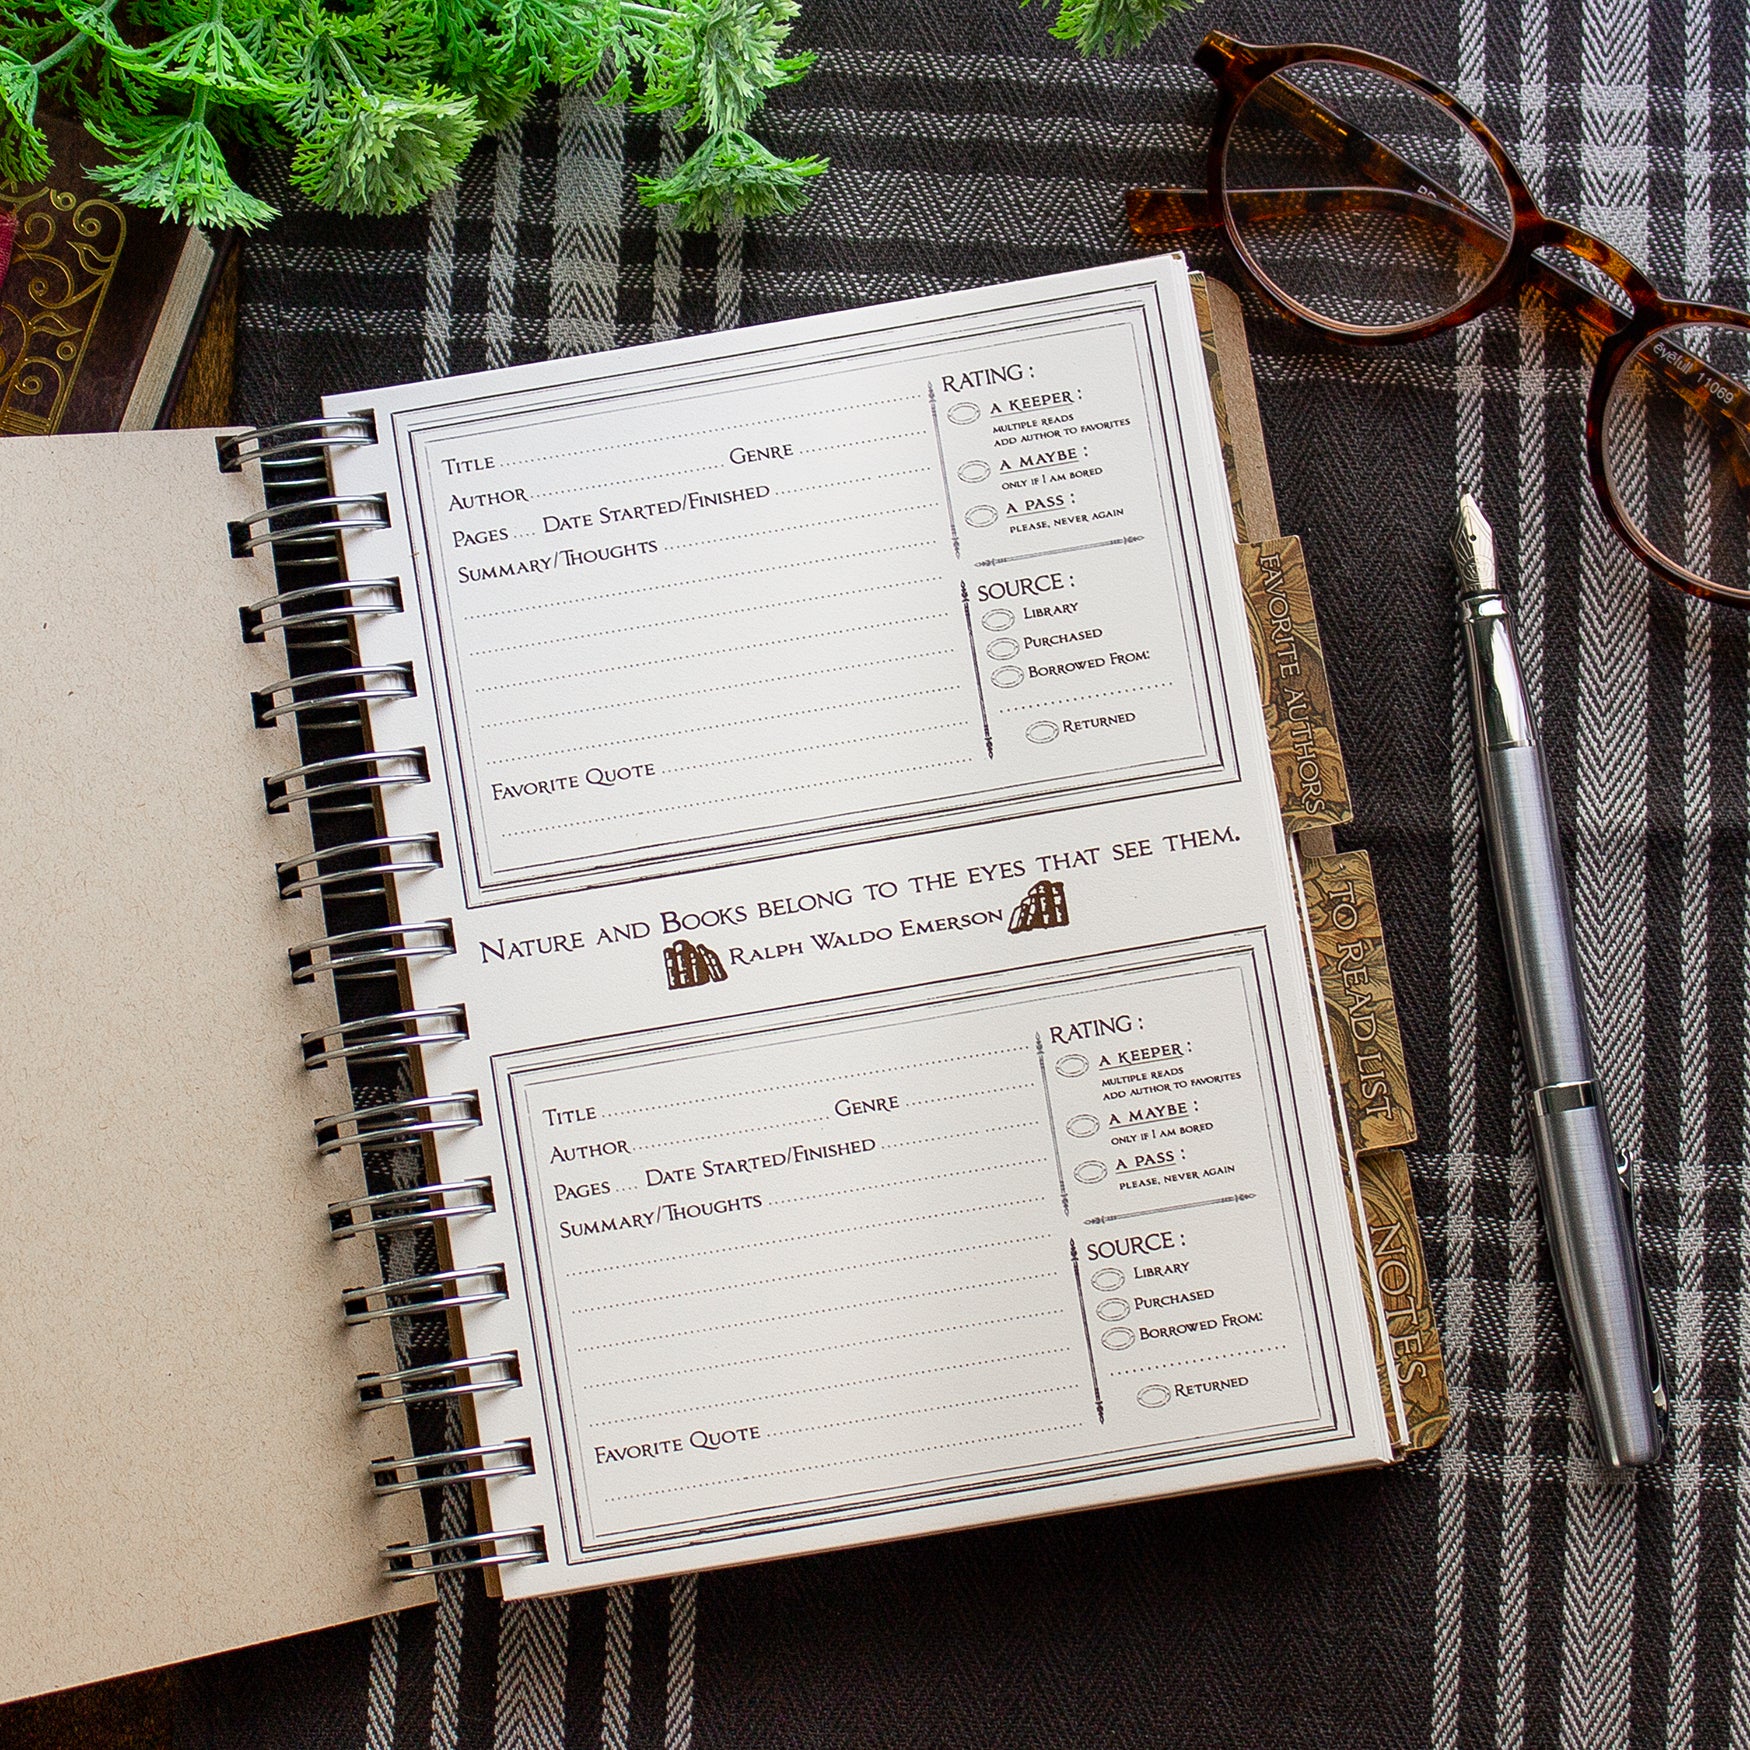 Title
Author Genre
Pages Date Started/Finished
Summary/Thoughts
Favorite Quote
RATING:
A KEEPER:
MULTIPLE READS
ADD AUTHOR TO FAVORITES
A MAYBE:
ONLY IF I AM BORED
A PASS:
PLEASE, NEVER AGAIN
SOURCE:
Library
Purchased
Borrowed From:
Returned
Nature and Books belong to the eyes that see them.
Ralph Waldo Emerson
Title
Author Genre
Pages Date Started/Finished
Summary/Thoughts
Favorite Quote
RATING:
A KEEPER:
MULTIPLE READS
ADD AUTHOR TO FAVORITES
A MAYBE:
ONLY IF I AM BORED
A PASS:
PLEASE, NEVER AGAIN
SOURCE:
Library
Purchased
Borrowed From:
Returned
FAVORITE AUTHORS
TO READ LIST
NOTES
ēvēful 11069